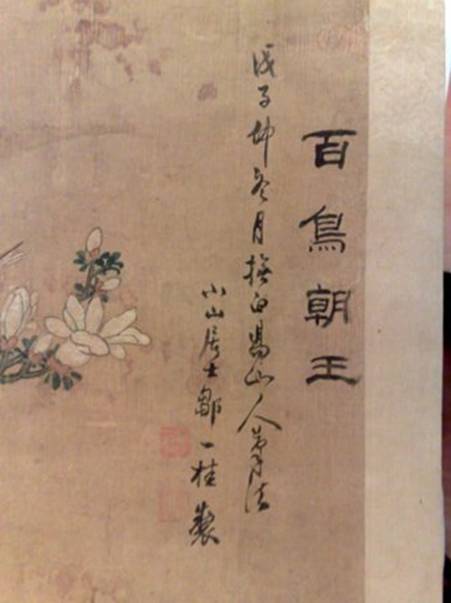 百鳥朝王
戊子仲冬月撫白陽山人筆法
小山居士鄒一桂製